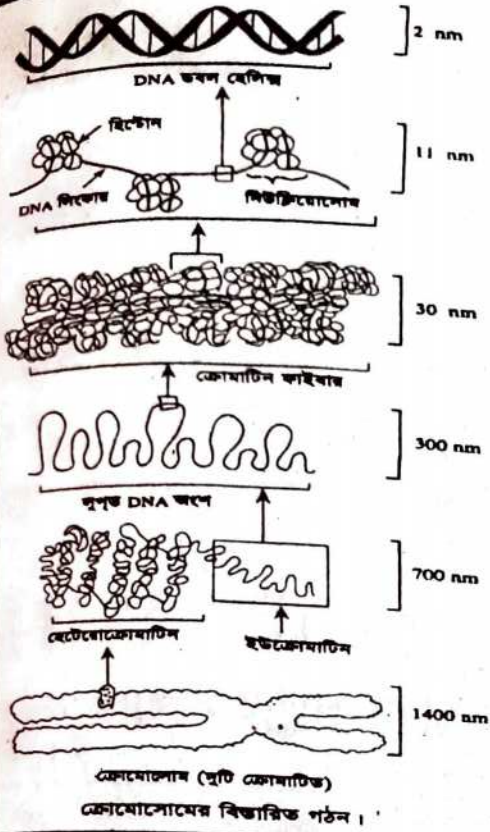 2 nm
DNA ডবল হেলিক্স
হিস্টোন
11 nm
DNA লিংকার
নিউক্লিয়োসোম
30 nm
ক্রোমাটিন ফাইবার
300 nm
লুপড DNA অংশ
700 nm
হেটেরোক্রোমাটিন
ইউক্রোমাটিন
1400 nm
ক্রোমোসোম (দুটি ক্রোমাটিড)
ক্রোমোসোমের বিস্তারিত গঠন।